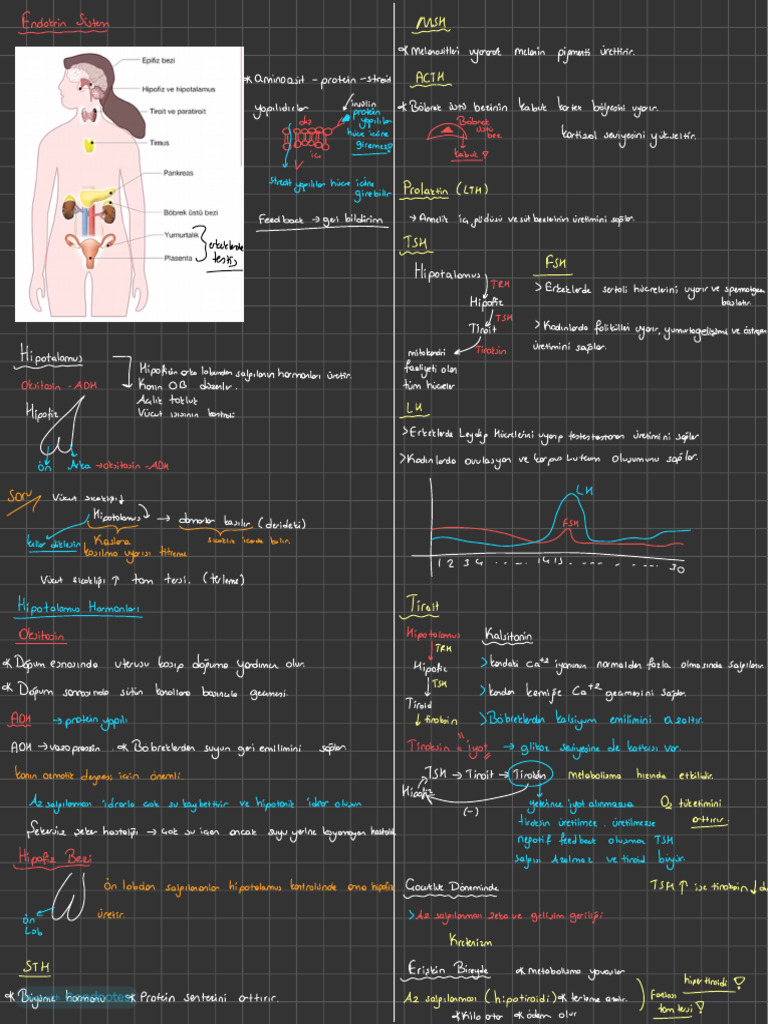 Endokrin Sistem
Epifiz bezi
Hipofiz ve hipotalamus
Tiroit ve paratiroit
Timus
Pankreas
Böbrek üstü bezi
Yumurtalık
Plasenta
erkeklerde
testis
* Aminoasit - protein - stroid
yapılıdırlar
dış
içi
insülin
protein
yapılılar
hücre icine
giremez?
stroit yapılılar hücre icine
girebilir
Feedback → geri bildirim
Hipotalamus
Oksitosin - ADH
Hipofizin arka lobundan salgılanan hormonları üretir.
Kanın OB düzenler.
Açlık tokluk
Vücut ısısının kontrolü
Hipofiz
ön
Arka → oksitosin - ADH
Soru
Vücut sıcaklığı ↓
Hipotalamus → damarlar kasılır (derideki)
kıllar dikleşir
Kaslara
kasılma uyarısı titreme
sıcaklık içerde kalır.
Vücut sıcaklığı ↑ tam tersi. (terleme)
Hipotalamus Hormonları
Oksitosin
* Doğum esnasında uterusu kasıp doğuma yardımcı olur.
* Doğum sonrasında sütün kanallara basınçla geçmesi.
ADH → protein yapılı
ADH → vazopressin. * Böbreklerden suyun geri emilimini sağlar.
kanın osmotik dengesi için önemli.
Az salgılanması idrarla çok su kaybettirir ve hipotonik idrar oluşur
Şekersiz şeker hastalığı → Çok su içen ancak suyu yerine koyamayan hastalık
Hipofiz Bezi
Ön lobdan salgılananlar hipotalamus kontrolünde ama hipofiz
üretir.
ön
Lob
STH
* Büyüme hormonu * Protein sentezini arttırır.
MSH
* Melanositleri uyararak melanin pigmenti ürettirir.
ACTH
* Böbrek üstü bezinin kabuk korteks bölgesini uyarır.
Böbrek
üstü
bez
kabuk?
kortizol seviyesini yükseltir.
Prolaktin (LTH)
→ Annelik iç güdüsü ve süt bezlerinin üretimini sağlar.
TSH
Hipotalamus
TRH
Hipofiz
TSH
Tiroit
Tiroksin
mitokondri
faaliyeti olan
tüm hücreler
FSH
> Erkeklerde sertoli hücrelerini uyarır ve spermatogenez
başlatır.
> Kadınlarda folikülleri uyarır, yumurta gelişimi ve östrojen
üretimini sağlar.
LH
> Erkeklerde Leydig Hücrelerini uyarıp testesteronun üretimini sağlar
> Kadınlarda ovulasyon ve korpus Luteum oluşumunu sağlar.
LH
FSH
1 2 3 4 ..... 14 15 ........ 30
Tiroit
Hipotalamus
TRH
Hipofiz
TSH
Tiroid
tiroksin
Kalsitonin
> kandaki Ca+2 iyonunun normalden fazla olmasında salgılanır.
> kandan kemiğe Ca+2 geçmesini sağlar.
> Böbreklerden kalsiyum emilimini azaltır.
Tiroksin = iyot → glikoz seviyesine de katkısı var.
Hipofiz → TSH → Tiroit → Tiroksin metabolizma hızında etkilidir.
(-)
yeterince iyot alınmazsa
tiroksin üretilmez. üretilmezse
negatif feedback oluşmaz TSH
salgısı azalmaz ve tiroid büyür.
O2 tüketimini
arttırır.
Çocukluk Döneminde
TSH ↑ ise tiroksin ↓
> Az salgılanması zeka ve gelişim geriliği
Kretenizm
Erişkin Bireyde
* metabolizma yavaşlar
Az salgılanması (hipotiroidi) * terleme azalır.
* Kilo alır * ödem olur
Fazlası
hipertiroidi?
tam tersi?